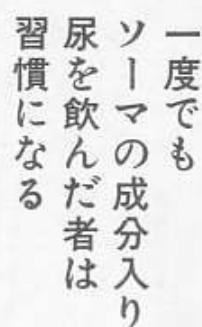 一度でも
ソーマの成分入り
尿を飲んだ者は
習慣になる